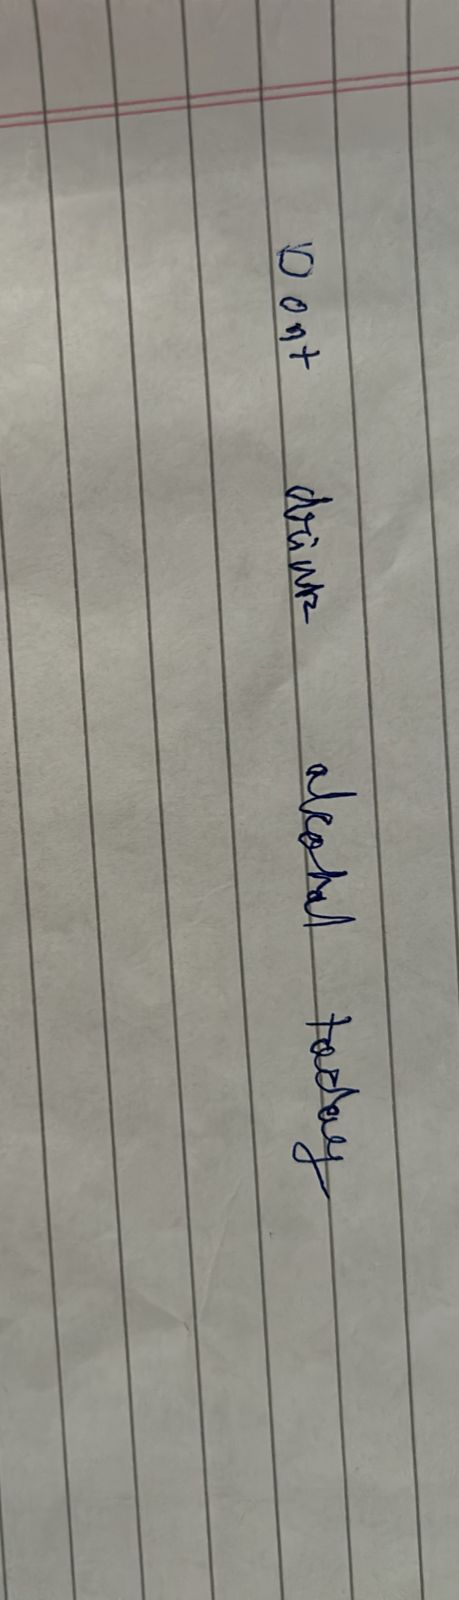 Dont drink alcohal today